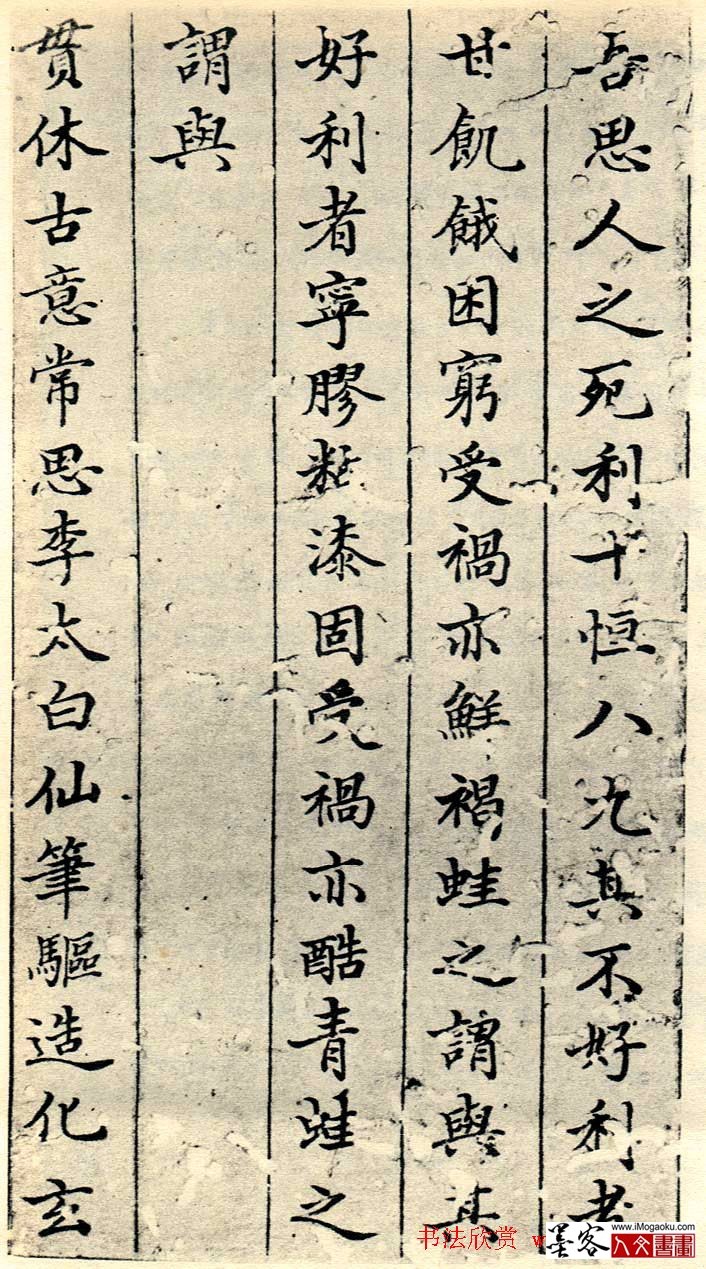 吾思人之死利十恒八九其不好利者
甘飢餓困窮受禍亦鮮褐蛙之謂與其
好利者寧膠粘漆固受禍亦酷青蛙之
謂與
貫休古意常思李太白仙筆驅造化玄
书法欣赏 w
墨客
www.iMogaoku.com
人文書畫